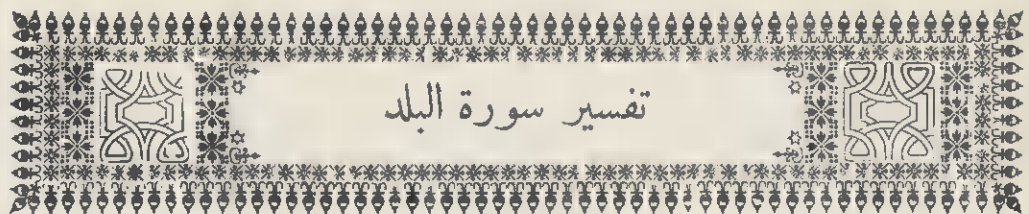 تفسير سورة البلد